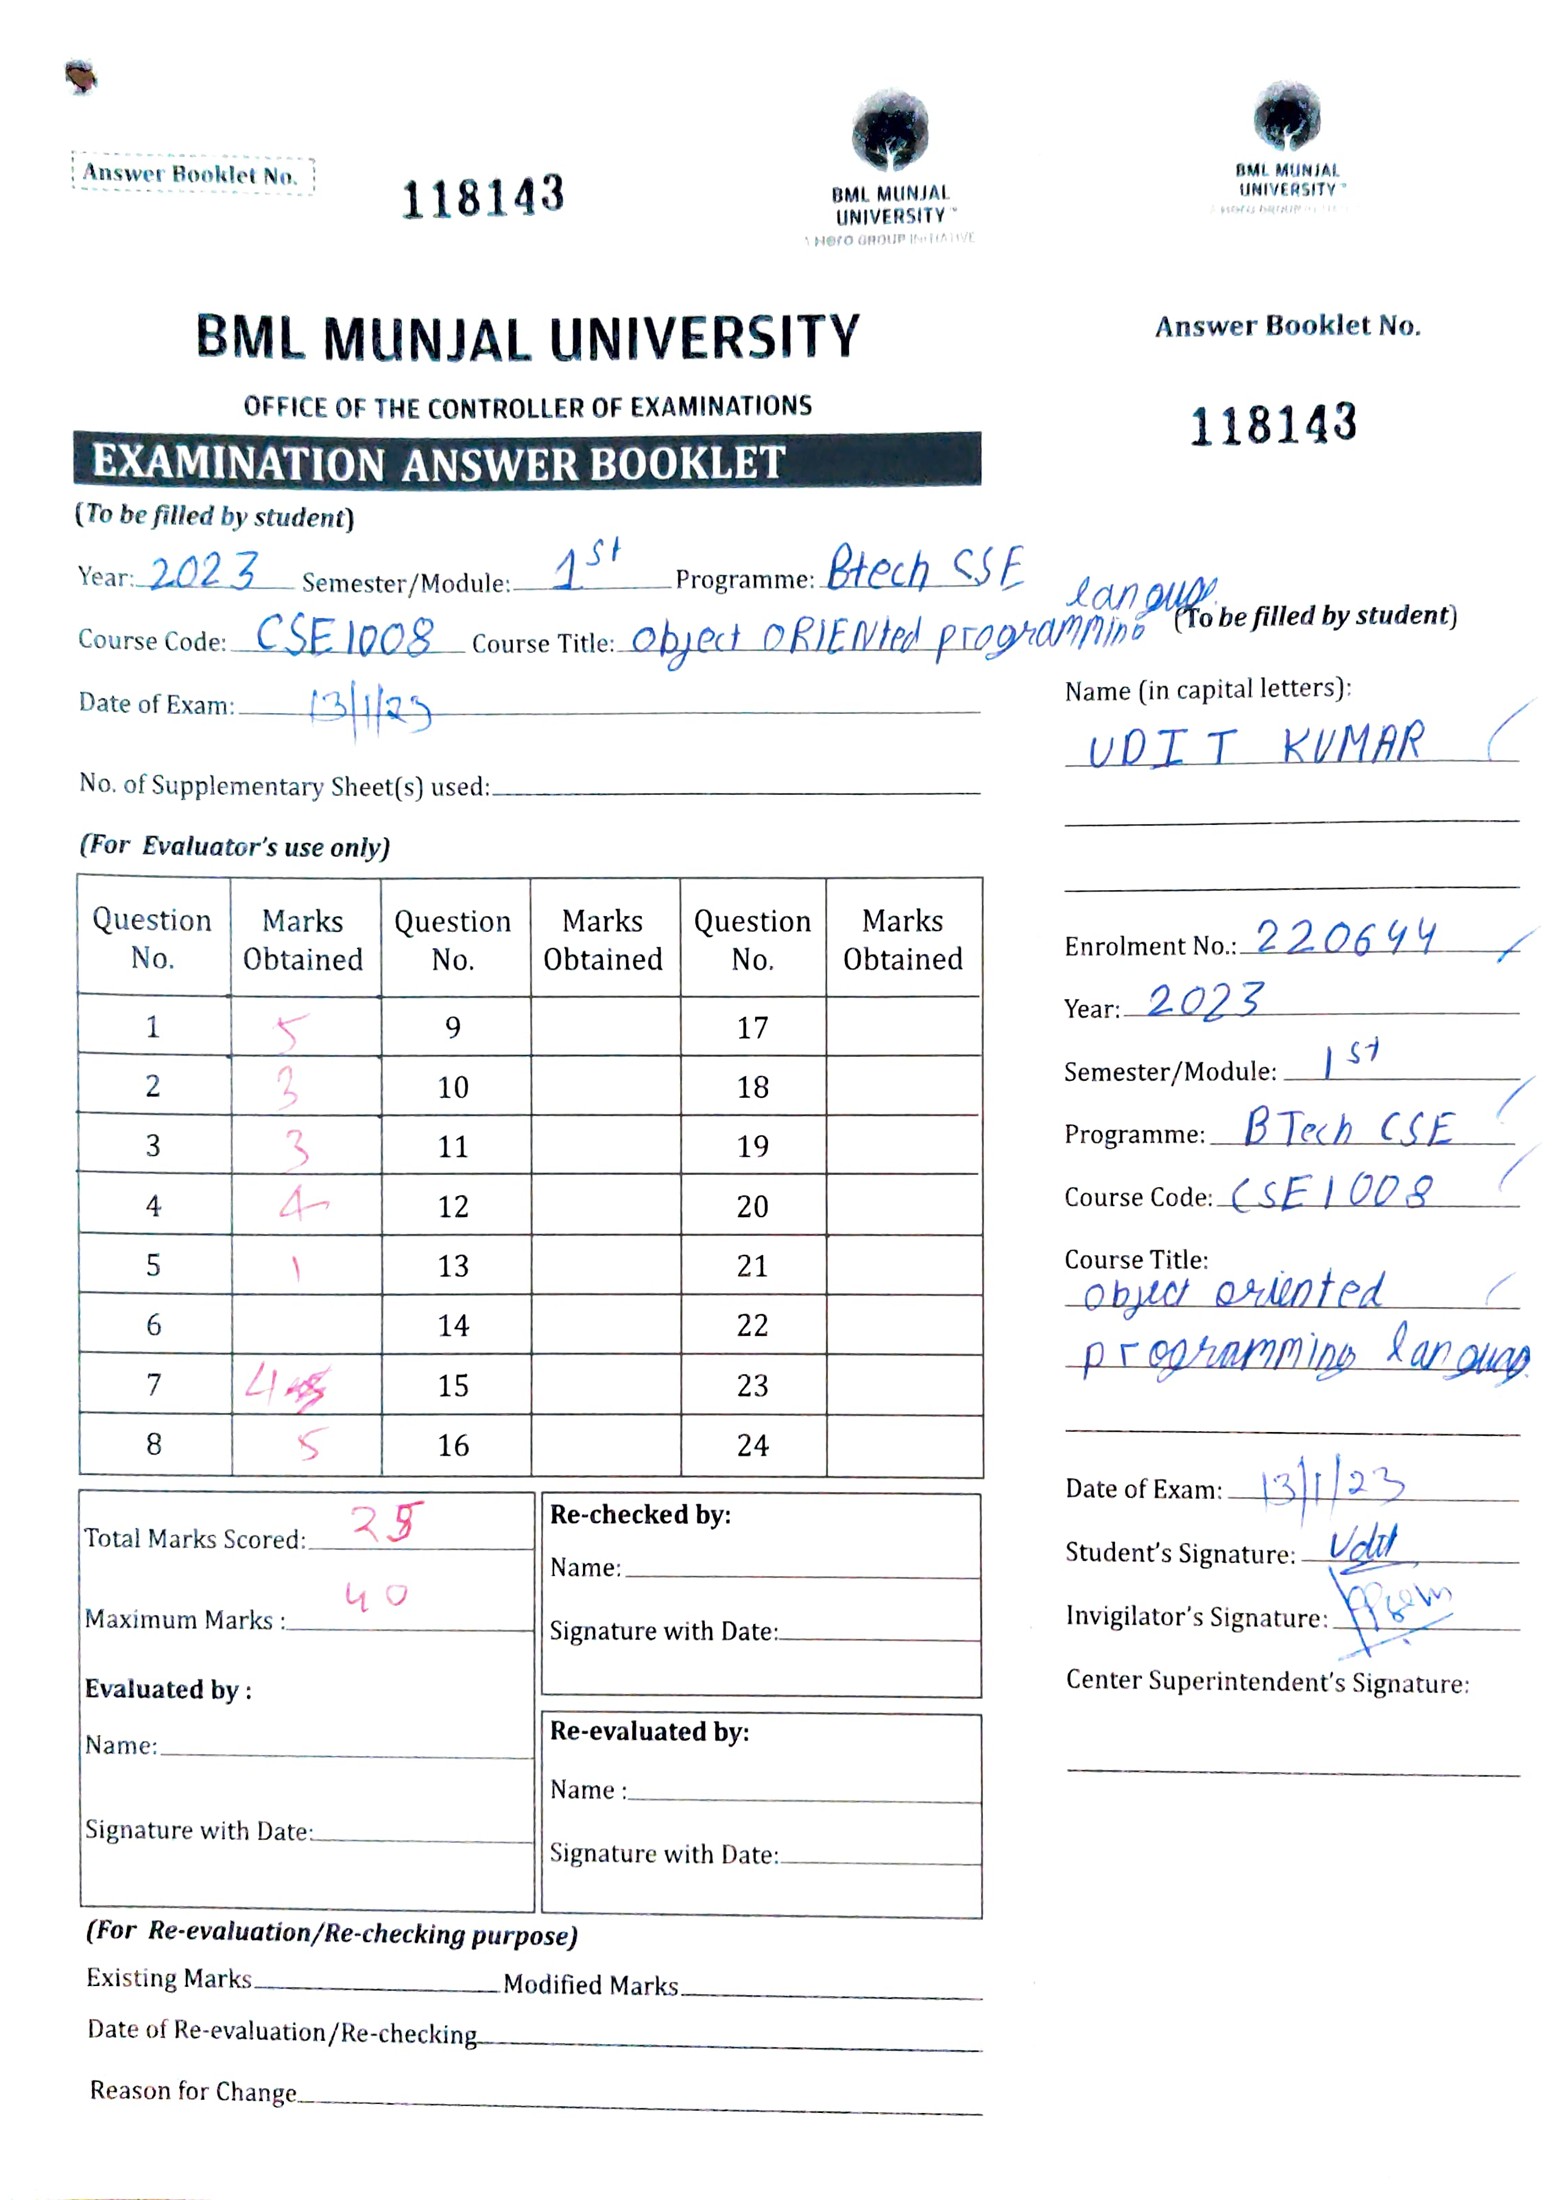 Answer Booklet No.
118143
BML MUNJAL
UNIVERSITY™
A Hero GROUP INITIATIVE
BML MUNJAL UNIVERSITY
OFFICE OF THE CONTROLLER OF EXAMINATIONS
EXAMINATION ANSWER BOOKLET
(To be filled by student)
Year: 2023 Semester/Module: 1st Programme: Btech CSE
Course Code: CSE1008 Course Title: Object ORIENted programming
Date of Exam: 13/1/23
No. of Supplementary Sheet(s) used:
(For Evaluator's use only)
Question No. Marks Obtained Question No. Marks Obtained Question No. Marks Obtained
1 5 9 17
2 3 10 18
3 3 11 19
4 4 12 20
5 1 13 21
6 14 22
7 4 15 23
8 5 16 24
Total Marks Scored: 25
Maximum Marks : 40
Evaluated by :
Name:
Signature with Date:
Re-checked by:
Name:
Signature with Date:
Re-evaluated by:
Name :
Signature with Date:
(For Re-evaluation/Re-checking purpose)
Existing Marks Modified Marks
Date of Re-evaluation/Re-checking
Reason for Change
BML MUNJAL
UNIVERSITY™
Answer Booklet No.
118143
(To be filled by student)
Name (in capital letters):
UDIT KUMAR
Enrolment No.: 220644
Year: 2023
Semester/Module: 1st
Programme: BTech CSE
Course Code: CSE1008
Course Title:
object oriented
programming
Date of Exam: 13/1/23
Student's Signature: Udit
Invigilator's Signature:
Center Superintendent's Signature: